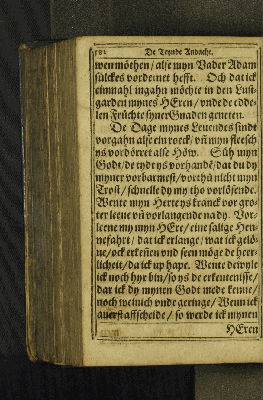 De Teynde Andacht.
wenmöthen / alse myn Vader Adam
sülckes vordenet hefft. Och dat ick
einmahl ingahn möchte in den Lust-
garden mynes HEren / vnde de edde-
len Früchte syner Gnaden geneten.
De Dage mynes Leuendes sindt
vorgahn alse ein roeck / vñ myn fleesch
ys vordörret alse Höw. Süh myn
Godt / de tydt ys vorhandē / dat du dy
myner vorbarmest / vorthü nicht myn
Trost / schnelle dy my tho vorlösende.
Wente myn Herte ys kranck vor gro-
ter leeue vñ vorlangende na dy. Vor-
leene my myn HEre / eine salige Hen-
nefahrt / dat ick erlange / wat ick gelö-
ue / ock erkeñen vnd seen möge de heer-
licheit / da ick up hape. Wente dewyle
ick noch hyr bin / so ys de erkentenisse /
dar ick dy mynen Godt mede kenne /
noch weinich vnde geringe / Wenn ick
auerst affscheide / so werde ick mynen
HEren